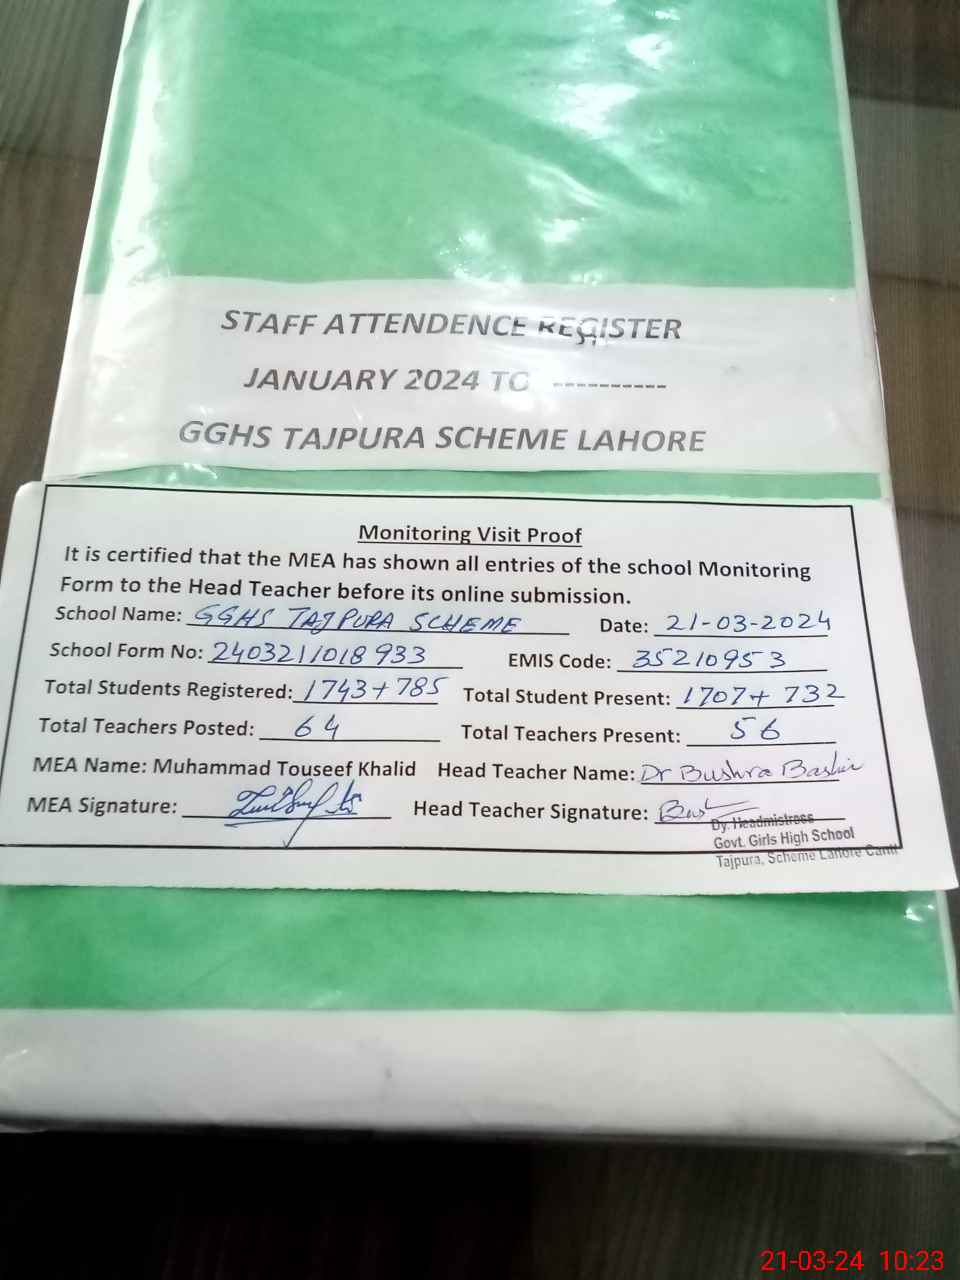 STAFF ATTENDENCE REGISTER
JANUARY 2024 TO ----------
GGHS TAJPURA SCHEME LAHORE
Monitoring Visit Proof
It is certified that the MEA has shown all entries of the school Monitoring
Form to the Head Teacher before its online submission.
School Name: GGHS TAJPURA SCHEME Date: 21-03-2024
School Form No: 2403211018933 EMIS Code: 35210953
Total Students Registered: 1743+785 Total Student Present: 1707+ 732
Total Teachers Posted: 64 Total Teachers Present: 56
MEA Name: Muhammad Touseef Khalid Head Teacher Name: Dr Bushra Bashir
MEA Signature: Head Teacher Signature:
Dy. Headmistress
Govt. Girls High School
Tajpura, Scheme Lahore Cantt
21-03-24 10:23